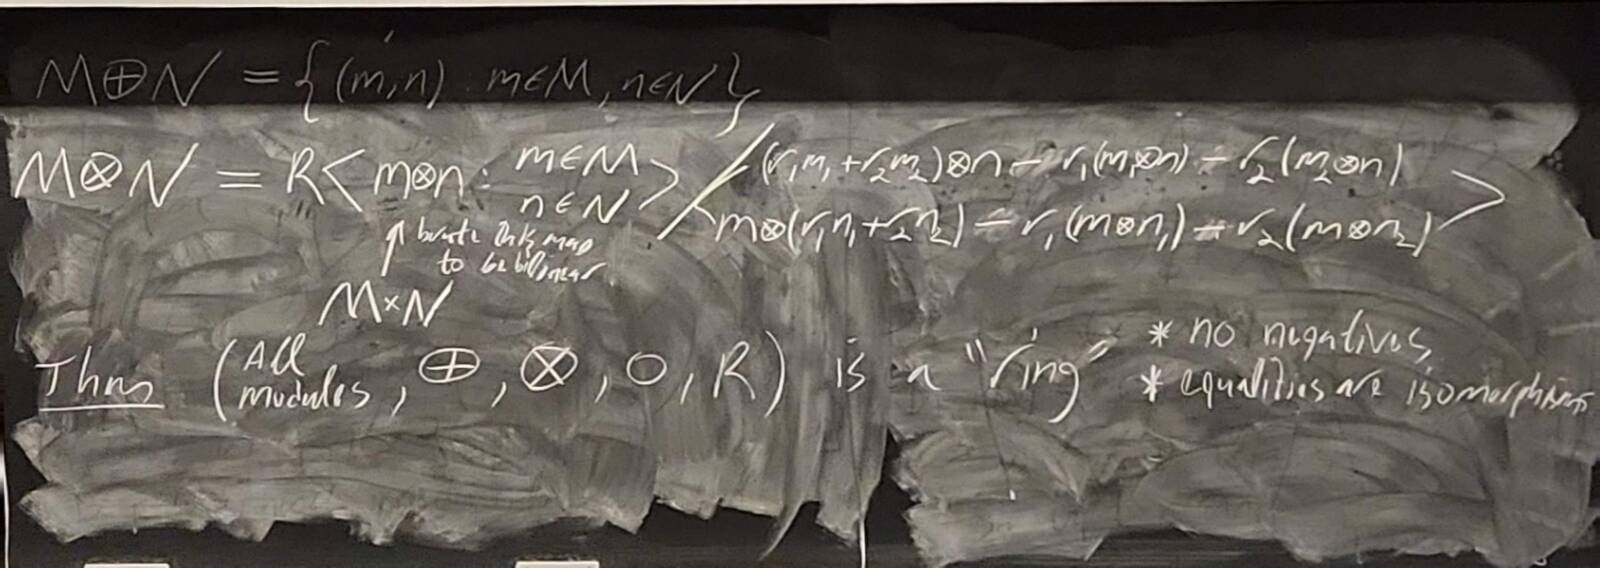 M⊕N = {(m,n) : m∈M, n∈N}
M⊗N = R< m⊗n : m∈M n∈N > / < (r₁m₁+r₂m₂)⊗n - r₁(m₁⊗n) - r₂(m₂⊗n)
m⊗(r₁n₁+r₂n₂) - r₁(m⊗n₁) - r₂(m⊗n₂) >
↑ this map
to be bilinear
M×N
Thm (All modules, ⊕, ⊗, 0, R) is a "ring" * no negatives,
* equalities are isomorphisms